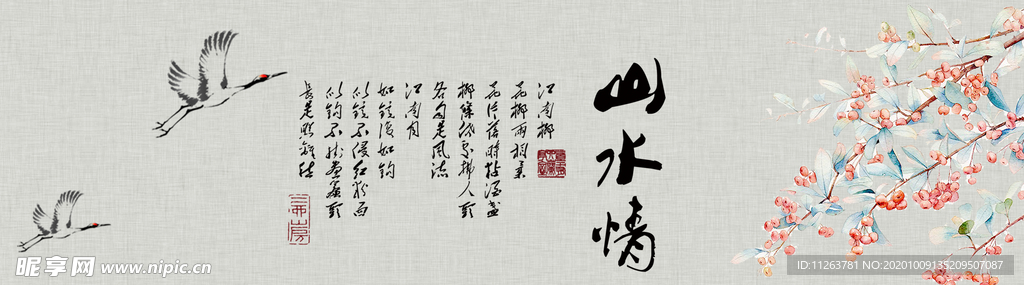 山水情
江南柳
花柳兩相柔
花片落時黏酒盞
柳條低處拂人頭
各自是風流
江南月
如鏡復如鈎
似鏡不侵紅粉面
似鈎不掛畫簷頭
長是照離愁
昵享网 www.nipic.cn
ID:11263781 NO:20201009135209507087